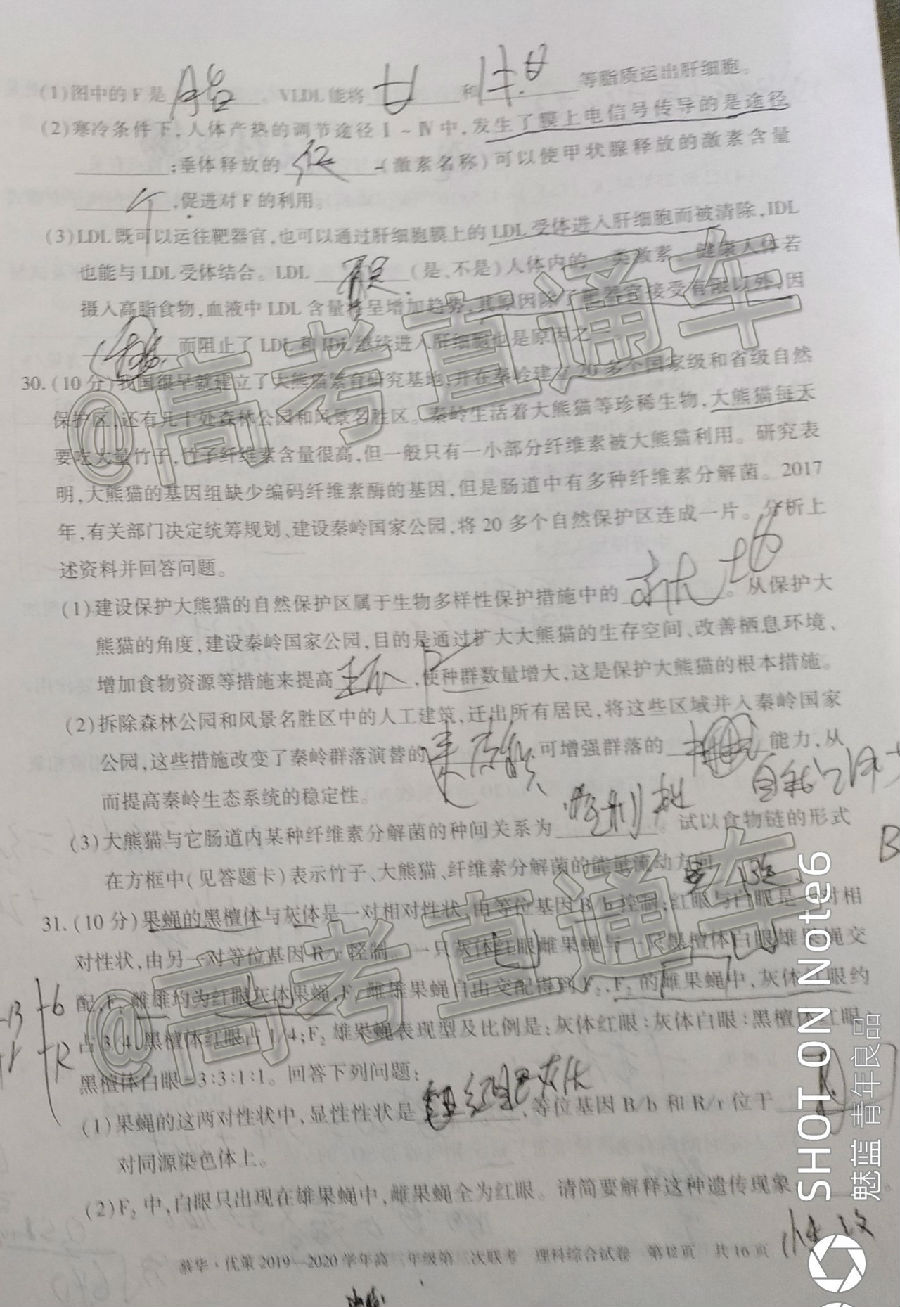 (1)图中的 F 是 胎 。VLDL 能将 甘 和 等脂质运出肝细胞。
(2)寒冷条件下,人体产热的调节途径 I ~ Ⅳ 中,发生了膜上电信号传导的是途径
;垂体释放的 促 (激素名称)可以使甲状腺释放的激素含量
,促进对 F 的利用。
(3)LDL 既可以运往靶器官,也可以通过肝细胞膜上的 LDL 受体进入肝细胞而被清除,IDL
也能与 LDL 受体结合。LDL (是,不是)人体内的一类激素。健康人体若
摄入高脂食物,血液中 LDL 含量将呈增加趋势,其原因除了靶器官接受有限以外,因
而阻止了 LDL 和 IDL 继续进入肝细胞也是原因之一。
30.(10 分)我国很早就建立了大熊猫繁育研究基地,并在秦岭建了 20 多个国家级和省级自然
保护区,还有几十处森林公园和风景名胜区。秦岭生活着大熊猫等珍稀生物,大熊猫每天
要吃大量竹子,竹子纤维素含量很高,但一般只有一小部分纤维素被大熊猫利用。研究表
明,大熊猫的基因组缺少编码纤维素酶的基因,但是肠道中有多种纤维素分解菌。2017
年,有关部门决定统筹规划、建设秦岭国家公园,将 20 多个自然保护区连成一片。分析上
述资料并回答问题。
(1)建设保护大熊猫的自然保护区属于生物多样性保护措施中的 就地 。从保护大
熊猫的角度,建设秦岭国家公园,目的是通过扩大大熊猫的生存空间、改善栖息环境、
增加食物资源等措施来提高 ,使种群数量增大,这是保护大熊猫的根本措施。
(2)拆除森林公园和风景名胜区中的人工建筑,迁出所有居民,将这些区域并入秦岭国家
公园,这些措施改变了秦岭群落演替的 可增强群落的 能力,从
而提高秦岭生态系统的稳定性。
自我
(3)大熊猫与它肠道内某种纤维素分解菌的种间关系为 。试以食物链的形式
在方框中(见答题卡)表示竹子、大熊猫、纤维素分解菌的能量流动方向。
B
31.(10 分)果蝇的黑檀体与灰体是一对相对性状,由等位基因 B/b 控制;红眼与白眼是一对相
对性状,由另一对等位基因 R/r 控制。一只灰体红眼雌果蝇与一只黑檀体白眼雄果蝇交
配,F₁ 雌雄均为红眼灰体果蝇,F₁ 雌雄果蝇自由交配得到 F₂,F₂ 的雌果蝇中,灰体红眼约
占 3/4,黑檀体红眼占 1/4;F₂ 雄果蝇表现型及比例是:灰体红眼:灰体白眼:黑檀体红眼:
黑檀体白眼=3:3:1:1。回答下列问题:
(1)果蝇的这两对性状中,显性性状是 红眼灰体 ,等位基因 B/b 和 R/r 位于
对同源染色体上。
(2)F₂ 中,白眼只出现在雄果蝇中,雌果蝇全为红眼。请简要解释这种遗传现象 。
慕华·优策 2019—2020 学年高三年级第二次联考 理科综合试卷 第12页 共16页
@高考直通车
@高考直通车
SHOT ON Note6
魅蓝 青年良品